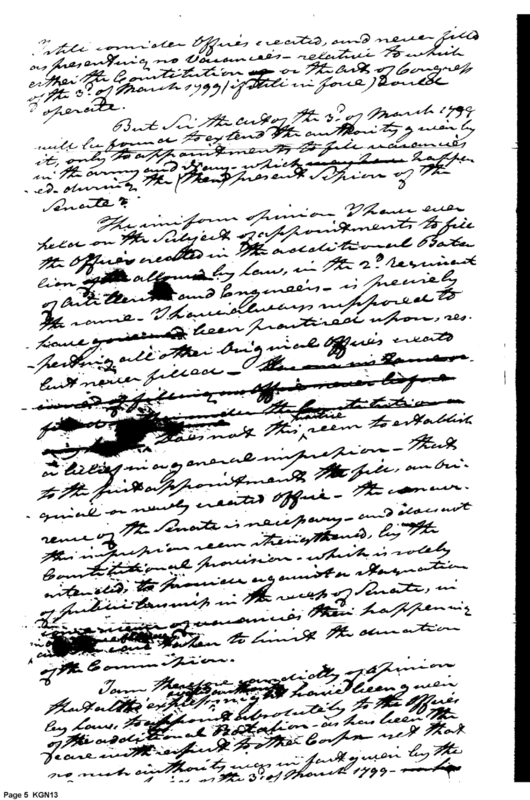 I still consider Offices created, and never filled
as presenting no vacancies - relative to which
either the Constitution or the Act of Congress
of the 3d of March 1799 (if still in force) could
operate.
But Sir the act of the 3d of March 1799
will be found to extend the authority given by
it, only to appointments to fill vacancies
in the army and Navy which may have happen
-ed during the (then) present Session of the
Senate.
The uniform opinion I have ever
held on the subject of appointments to fill
the Offices created in the additional Bata
lion allowed by law, in the 2d Regiment
of Artillerists and Engineers - is precisely
the same - I have always supposed to
have been practised upon, res
-pecting all other Original Offices created
but never filled -
of filling an Office never before
under the Constitution
Does not this seem to establish
a belief in a general impression - that
to the first appointments to fill, an ori
ginal or newly created Office - the concur
rence of the Senate is necessary - and does not
this impression seem strengthened, by the
Constitutional provision - which is solely
intended, to provide against a stagnation
of public business in the recess of Senate, in
of vacancies then happening
taken to limit the duration
of the Commission.
I am therefore candidly of opinion
that authority to have been given
by law, to appoint absolutely to the Offices
of the additional Batalion - as has been the
case with respect to other Corps - yet that
no such authority was in fact given by the
the 3d of March 1799 -
Page 5 KGN13